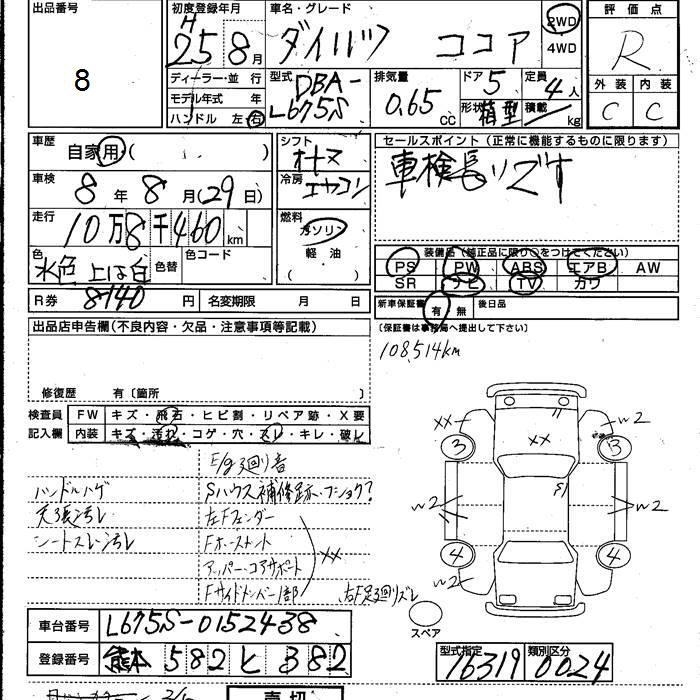 出品番号
8
初度登録年月
H25 8月
車名・グレード
ダイハツ ココア
2WD
4WD
評価点
R
外装 内装
C C
ディーラー・並行
モデル年式 年
ハンドル 左 右
型式
DBA-
L675S
排気量
0.65
cc
ドア
5
形状 箱型
定員
4人
積載
kg
車歴
自家用( )
シフト
オートマ
セールスポイント(正常に機能するものに限ります)
車検長いです
車検
8年8月(29日)
冷房
エアコン
走行
10万8千460km
燃料
ガソリン
軽油
( )
色
水色 上は白
色替
色コード
装備品(純正品に限り○をつけてください)
PS PW ABS エアB AW
SR ナビ TV カワ
R券 8140円
名変期限 月 日
新車保証書 有 無
後日品
(保証書は事務局へ提出して下さい)
出品店申告欄(不良内容・欠品・注意事項等記載)
108,514km
修復歴 有〔箇所 〕
検査員 FW キズ・飛石・ヒビ割・リペア跡・X要
記入欄 内装 キズ・汚れ・コゲ・穴・スレ・キレ・破レ
E/g廻り音
ハンドルハゲ
Sハウス補修跡・フショク?
天張汚レ
左Fフェンダー
シートスレ汚レ
Fホースメント
XX
アッパー・コアサポート
Fサイドメンバー1部
右F足廻りズレ
XX
3
w2
XX
w2
3
S1
w2
w2
4
w2
4
スペア
車台番号 L675S-0152438
登録番号 熊本 582 と 382
型式指定
16319
類別区分
0024
売切